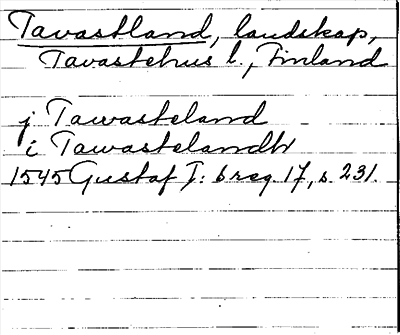 Tavastland, landskap,
Tavastehus l., Finland
j Tawasteland
i Tawastelandh
1545 Gustaf I: breg. 17, s. 231.